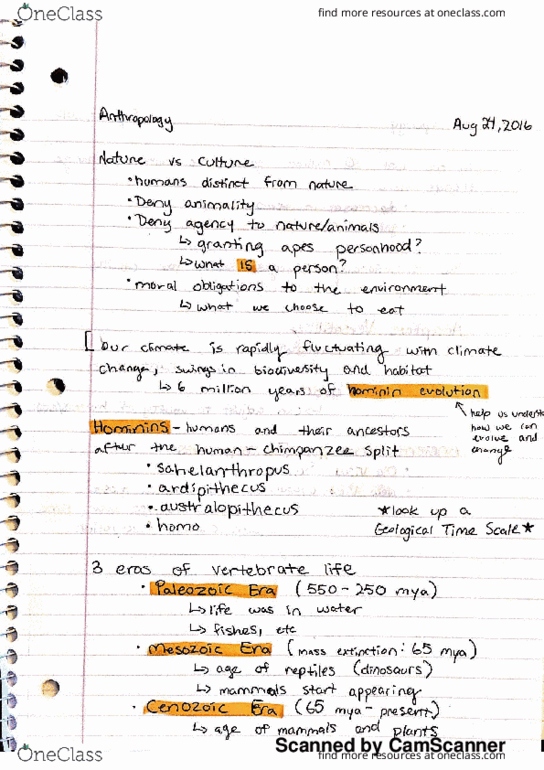 OneClass
find more resources at oneclass.com
Anthropology
Aug 24, 2016
Nature vs Culture
• humans distinct from nature
• Deny animality
• Deny agency to nature/animals
↳ granting apes personhood?
↳ what is a person?
• moral obligations to the environment
↳ what we choose to eat
[our climate is rapidly fluctuating with climate
change, swings in biodiversity and habitat
↳ 6 million years of hominin evolution
help us underste
how we can
evolve and
change
Hominins - humans and their ancestors
after the human-chimpanzee split
• sahelanthropus
• ardipithecus
• australopithecus
• homo
★look up a
Geological Time Scale★
3 eras of vertebrate life
• Paleozoic Era (550-250 mya)
↳ life was in water
↳ fishes, etc
• Mesozoic Era (mass extinction: 65 mya)
↳ age of reptiles (dinosaurs)
↳ mammals start appearing
• Cenozoic Era (65 mya - present)
↳ age of mammals and plants
Scanned by CamScanner
OneClass
find more resources at oneclass.com